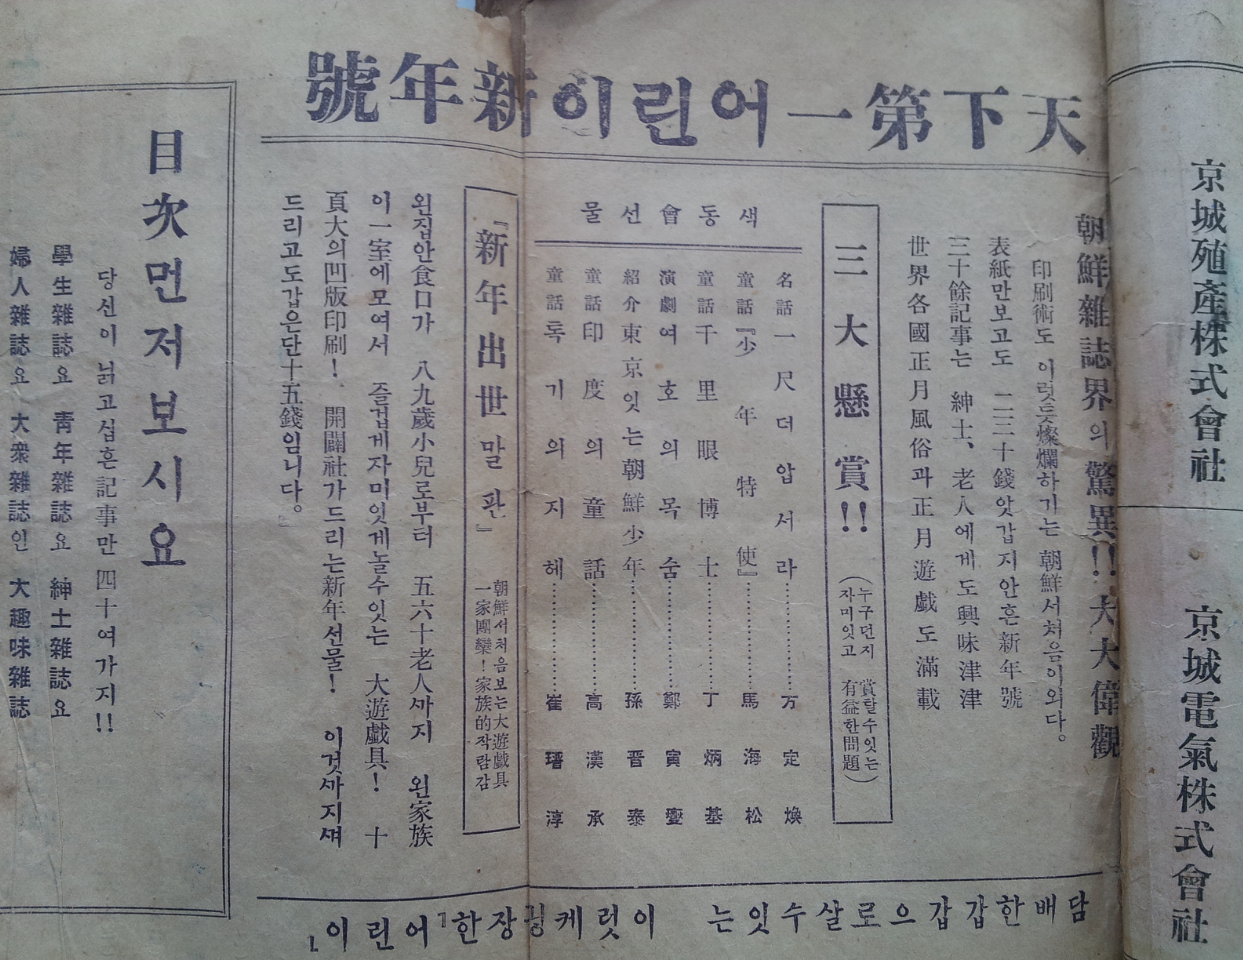 京城殖產株式會社
京城電氣株式會社
天下第一어린이新年號
朝鮮雜誌界의驚異!!大大偉觀
印刷術도 이럿듯燦爛하기는 朝鮮서처음이외다。
表紙만보고도 二三十錢앗갑지안흔新年號
三十餘記事는 紳士、老人에게도興味津津
世界各國正月風俗과正月遊戱도滿載
三大懸賞!!
(누구던지 賞탈수잇는
자미잇고 有益한問題)
색동會선물
名話一尺더압서라……万定煥
童話『少年特使』……馬海松
童話千里眼博士……丁炳基
演劇여호의목숨……鄭寅燮
紹介東京잇는朝鮮少年……孫晋泰
童話印度의童話……高漢承
童話톡기의지혜……崔瑨淳
『新年出世말판』
朝鮮서처음보는大遊戱具
一家團欒!家族的작란감
왼집안食口가 八九歲小兒로부터 五六十老人까지 왼家族
이一室에모여서 즐겁게자미잇게놀수잇는 大遊戱具! 十
頁大의凹版印刷! 開闢社가드리는新年선물! 이것까지껴
드리고도갑은단十五錢임니다。
담배한갑갑으로살수잇는 이럿케굉장한「어린이」
目次먼저보시요
당신이 닑고십흔記事만 四十여가지!!
學生雜誌요 靑年雜誌요 紳士雜誌요
婦人雜誌요 大衆雜誌인 大趣味雜誌